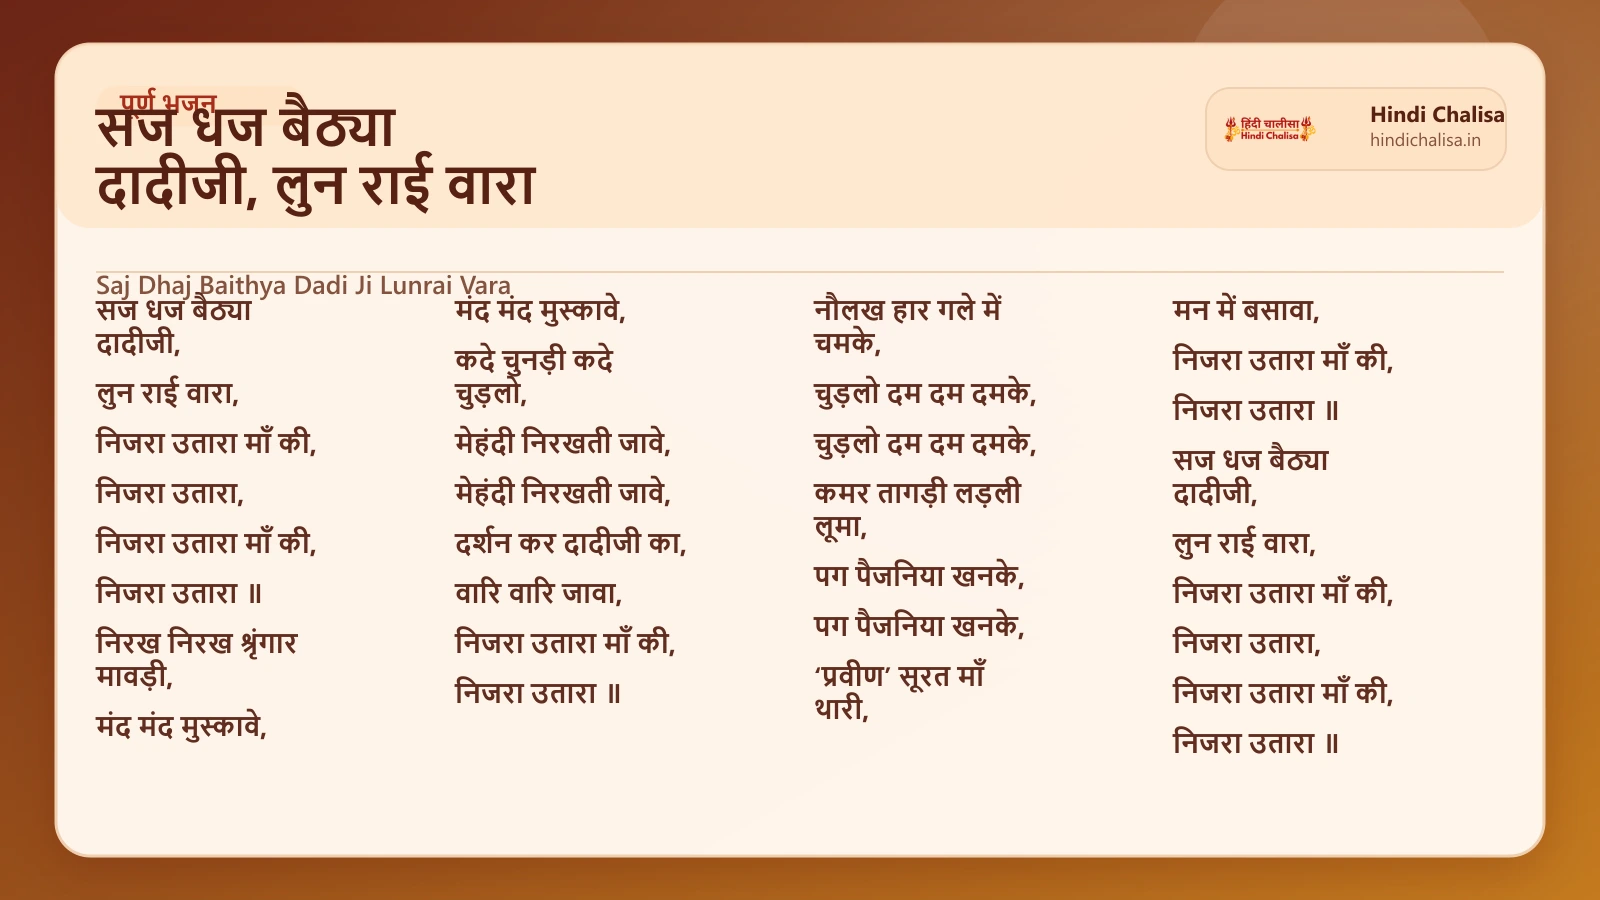 पूर्ण भजन
सज धज बैठ्या
दादीजी, लुन राई वारा
हिंदी चालीसा
Hindi Chalisa
Hindi Chalisa
hindichalisa.in
Saj Dhaj Baithya Dadi Ji Lunrai Vara
सज धज बैठ्या
दादीजी,
लुन राई वारा,
निजरा उतारा माँ की,
निजरा उतारा,
निजरा उतारा माँ की,
निजरा उतारा ॥
निरख निरख श्रृंगार
मावड़ी,
मंद मंद मुस्कावे,
मंद मंद मुस्कावे,
कदे चुनड़ी कदे
चुड़लो,
मेहंदी निरखती जावे,
मेहंदी निरखती जावे,
दर्शन कर दादीजी का,
वारि वारि जावा,
निजरा उतारा माँ की,
निजरा उतारा ॥
नौलख हार गले में
चमके,
चुड़लो दम दम दमके,
चुड़लो दम दम दमके,
कमर तागड़ी लड़ली
लूमा,
पग पैजनिया खनके,
पग पैजनिया खनके,
‘प्रवीण’ सूरत माँ
थारी,
मन में बसावा,
निजरा उतारा माँ की,
निजरा उतारा ॥
सज धज बैठ्या
दादीजी,
लुन राई वारा,
निजरा उतारा माँ की,
निजरा उतारा,
निजरा उतारा माँ की,
निजरा उतारा ॥